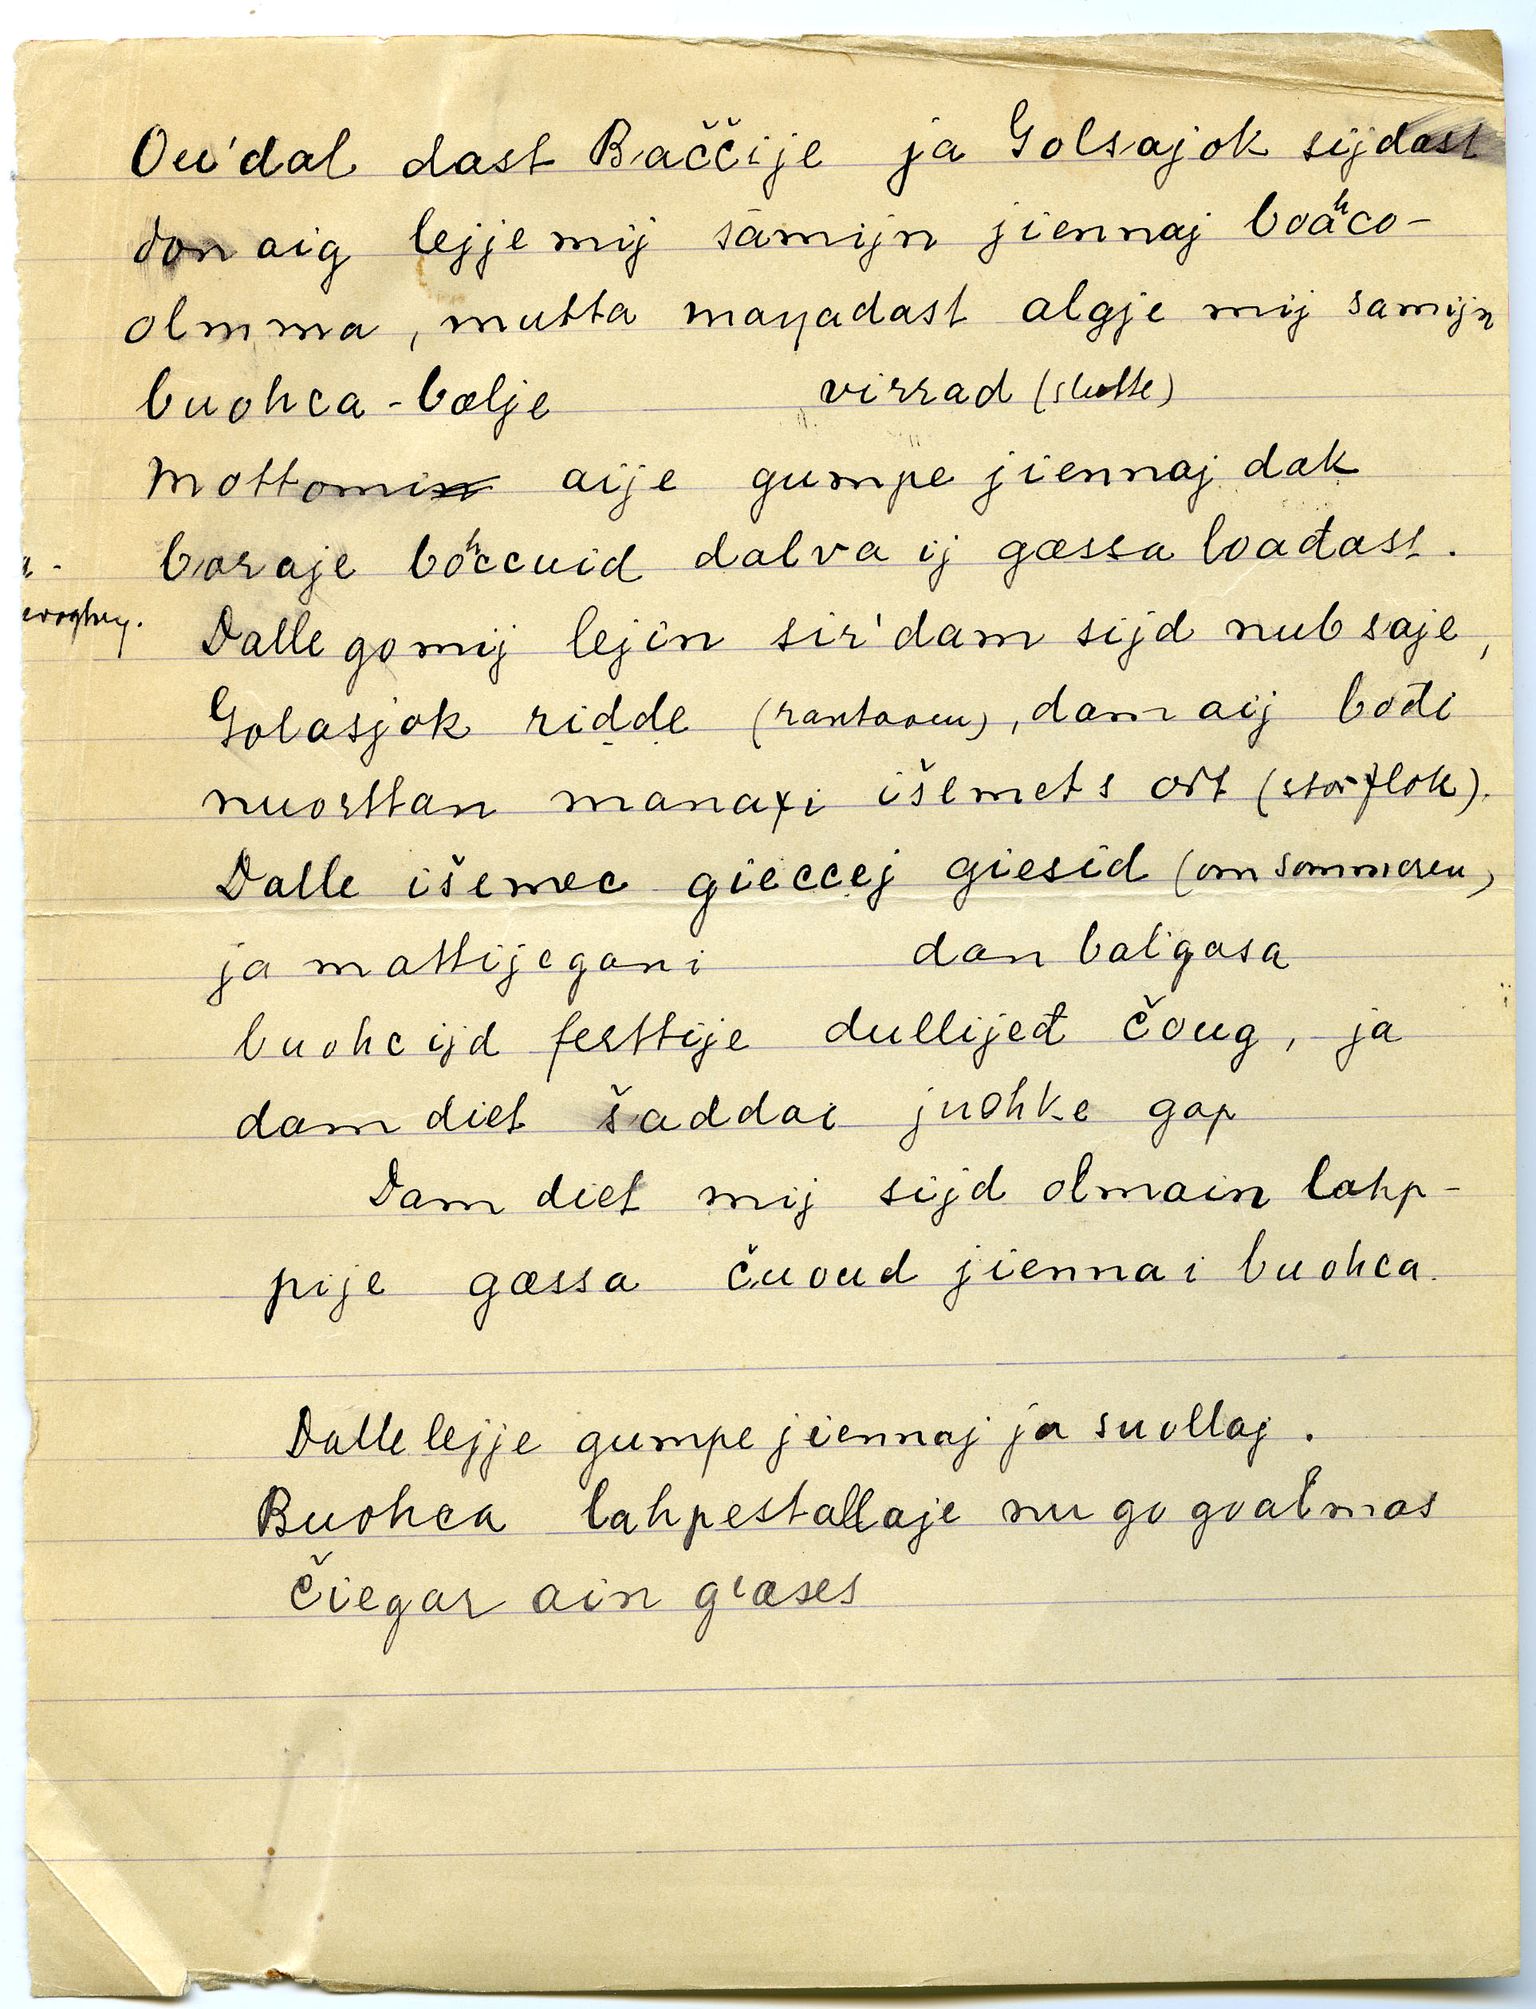 Ou'dal dast Baččije ja Golsajok sijdast
don aig lejje mij sāmijn jiennaj boaʰco-
olmma, mutta maŋadast algje mij samijn
buohca-bælje virrad (slutte)
Mottomin aije gumpe jiennaj dak
boraje boʰccuid dalva ij gæssa loađast.
Dalle go mij lejin sir'dam sijd nub saje,
Golasjok ridde (rantaaen), dam aij bođi
nuorttan manaxi išemets ořt (storflok).
Dalle išemec gieccej giesid (om sommeren)
ja mattijegani dan balgasa
buohcijd ferttije dullijeđ čoug, ja
dam diet šaddai juohke gap
Dam diet mij sijd olmain lahp-
pije gæssa čuoud jiennai buohca.
Dalle lejje gumpe jiennaj ja suollaj.
Buohca lahpestallaje nu go goalmas
čiegar ain g'æses